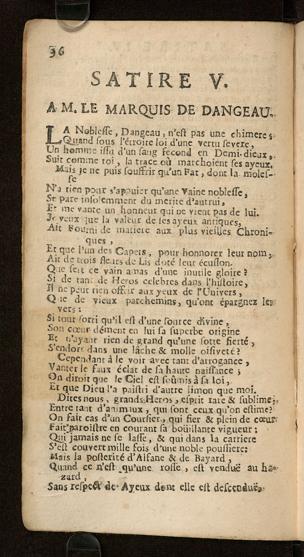 36
SATIRE V.
A M. LE MARQUIS DE DANGEAU.
LA Noblesse, Dangeau, n'est pas une chimere;
Quand sous l'étroite loi d'une vertu severe,
Un homme issu d'un sang fecond en Demi-dieux,
Suit comme toi, la trace où marchoient ses ayeux.
Mais je ne puis souffrir qu'un Fat, dont la moles-
se
N'a rien pour s'appuier qu'une vaine noblesse,
Se pare insolemment du merite d'autrui,
Et me vante un honneur qui ne vient pas de lui.
Je veux que la valeur de ses ayeux antiques,
Ait fourni de matiere aux plus vieilles Chroni-
ques,
Et que l'un des Capets, pour honnorer leur nom,
Ait de trois fleurs de Lis doté leur écusson.
Que sert ce vain amas d'une inutile gloire?
Si de tant de Heros celebres dans l'histoire,
Il ne peut rien offrir aux yeux de l'Univers,
Que de vieux parchemins, qu'ont épargnez les
vers:
Si tout sorti qu'il est d'une source divine,
Son cœur dément en lui sa superbe origine
Et n'ayant rien de grand qu'une sotte fierté,
S'endort dans une lâche & molle oisiveté?
Cependant à le voir avec tant d'arrogance,
Vanter le faux éclat de sa haute naissance;
On diroit que le Ciel est soûmis à sa loi,
Et que Dieu l'a paistri d'autre limon que moi.
Dites nous, grands Heros, esprit rare & sublime,
Entre tant d'animaux, qui sont ceux qu'on estime?
On fait cas d'un Coursier, qui fier & plein de cœur
Fait paroistre en courant sa boüillante vigueur:
Qui jamais ne se lasse, & qui dans la carriere
S'est couvert mille fois d'une noble poussiere:
Mais la posterité d'Alfane & de Bayard,
Quand ce n'est qu'une rosse, est venduë au ha-
zard,
Sans respect de Ayeux dont elle est descenduë,